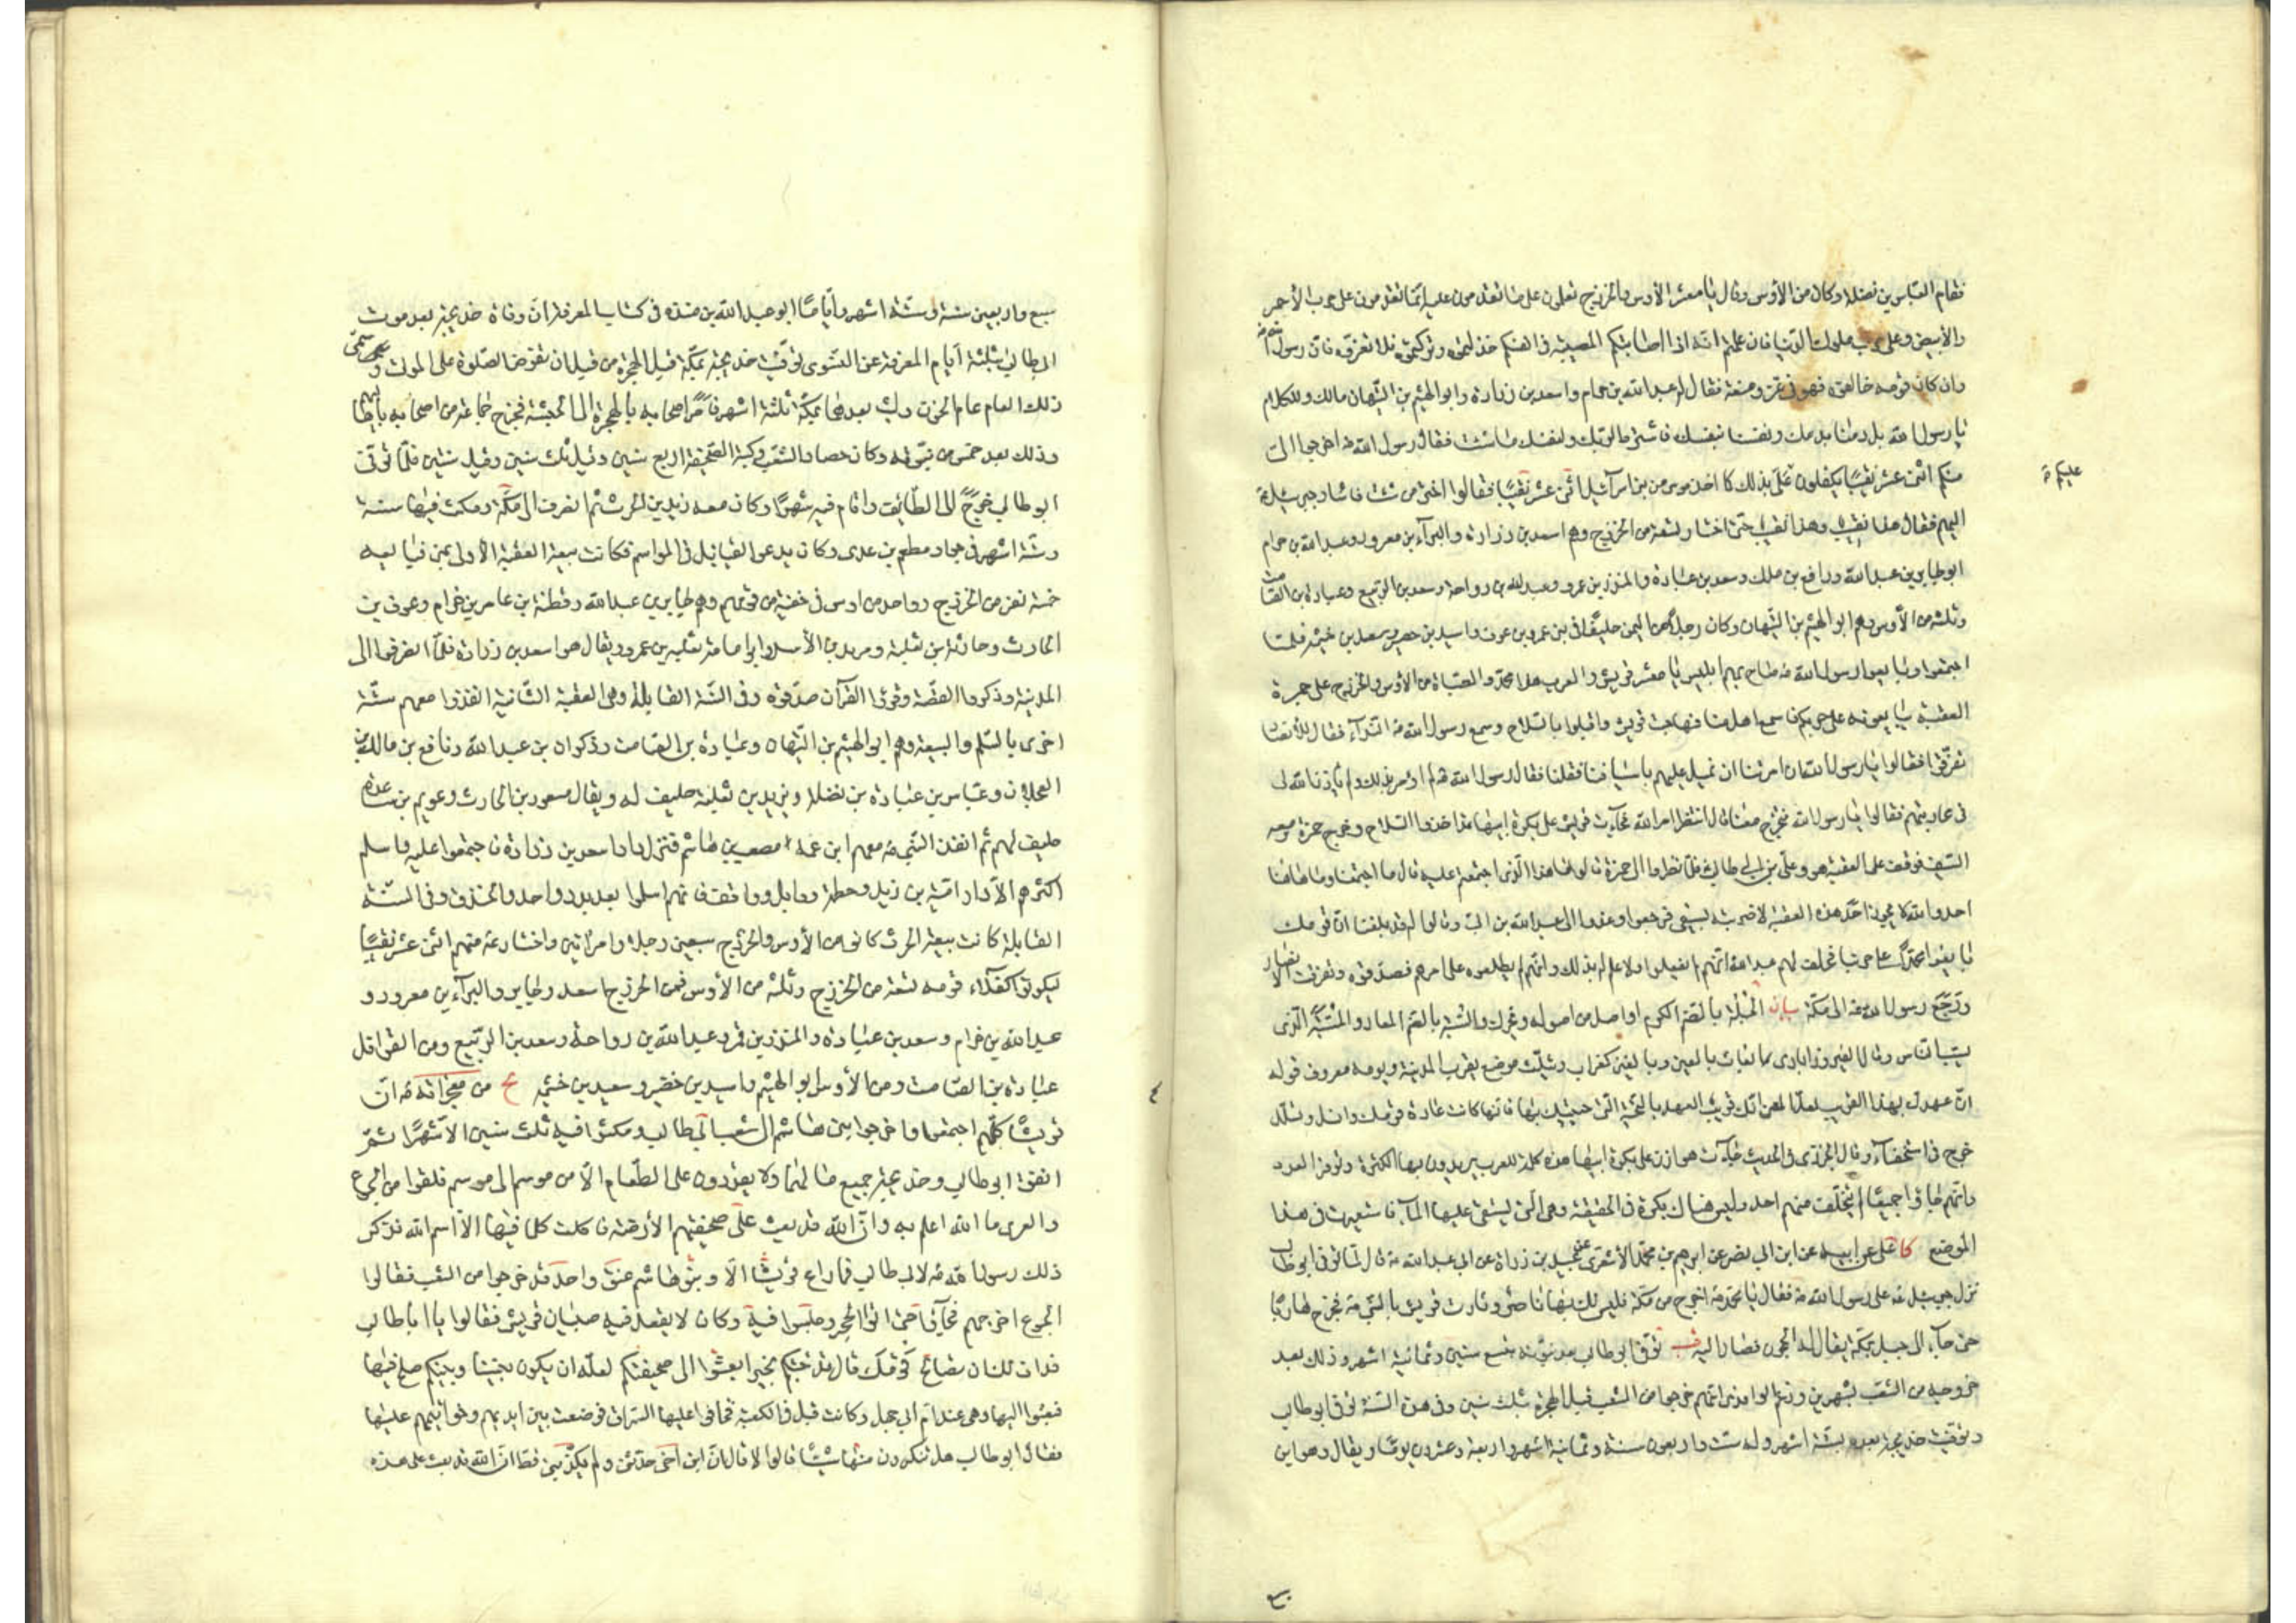 فقام العباس بن نضلة وكان من الأوس وقال يا معشر الأوس والخزرج تعلمون على ما تقدمون عليه إنما تقدمون على حرب الأحمر
والأبيض وعلى حرب ملوك الدنيا فان علمتم انه اذا اصابتكم المصيبة في انفسكم خذلتموه وتركتموه فلا تغروه فان رسول الله
وان كان قومه خالفوه فهو في عز ومنعة فقال له عبد الله بن حرام واسعد بن زرارة وابو الهيثم بن التيهان مالك وللكلام
يا رسول الله بل دمنا بدمك وانفسنا بنفسك فاشترط لربك ولنفسك ما شئت فقال رسول الله ص اخرجوا الى
منكم اثنى عشر نقيبا يكفلون عليكم بذلك كما اخذ موسى من بنى اسرآئيل اثنى عشر نقيبا فقالوا اختر من شئت فاشار جبرئيل
اليهم فقال هذا نقيب وهذا نقيب حتى اختار تسعة من الخزرج وهم اسعد بن زرارة والبرآء بن معرور وعبد الله بن حرام
ابو جابر بن عبد الله ورافع بن ملك وسعد بن عبادة والمنذر بن عمرو وعبد الله بن رواحة وسعد بن الربيع وعبادة بن الصامت
وثلثة من الأوس وهم ابو الهيثم بن التيهان وكان رجلا من اليمن حليفا في بنى عمرو بن عوف واسيد بن حضير وسعد بن خيثمة فلما
اجتمعوا وبايعوا رسول الله ص صاح بهم ابليس يا معشر قريش والعرب هذا محمد والصباة من الأوس والخزرج على جمرة
العقبة يبايعونه على حربكم فاسمع اهل منا فهاجت قريش واقبلوا بالسلاح وسمع رسول الله ص النداء فقال للأنصار
تفرقوا فقالوا يا رسول الله ان امرتنا ان نميل عليهم باسيافنا فعلنا فقال رسول الله ص لم اومر بذلك ولم يأذن الله لى
في محاربتهم فقالوا يا رسول الله تخرج معنا قال انتظر امر الله فجآءت قريش على بكرة ابيها قد اخذوا السلاح وخرج حمزة ومعه
السيف فوقف على العقبة هو وعلى بن ابي طالب فلما نظروا الى حمزة قالوا ما هذا الذى اجتمعتم عليه قال ما اجتمعنا وما هاهنا
احد والله لا يجوز احد هذه العقبة الا ضربته بسيفي فرجعوا وغدوا الى عبد الله بن ابي وقالوا له قد بلغنا ان قومك
بايعوا محمدا على حربنا فحلف لهم عبد الله انهم لم يفعلوا ولا علم له بذلك وانهم لم يطلعوه على امرهم فصدقوه وتفرقت الأنصار
ورجع رسول الله ص الى مكة بيان الجبلة بالضم الكرم او اصل من اصوله ويحرك والشبة بالضم العار والمسبة الذى
يسب الناس وقال الفيروزابادى بعاث بالعين وبالغين كغراب ويثلث موضع بقرب المدينة ويومه معروف قوله
ان عهدك بهذا القريب لعل المعنى انك قريب العهد بالتحية التى حييتك بها فانها كانت عادة قومك
خرج في استخفاء وقال الجزرى في الحديث جآءت هوازن على بكرة ابيها هذه كلمة للعرب يريدون بها الكثرة وتوفر العدد
وانهم جاؤا جميعا لم يتخلف منهم احد وليس هناك بكرة في الحقيقة وهى التى يستقى عليها المآء فاستعيرت في هذا
الموضع كا على عن ابيه عن ابن ابي نصر عن ابرهيم بن محمد الأشعرى عن عبيد بن زرارة عن ابي عبد الله ع قال لما توفى ابو طالب
نزل جبرئيل ع على رسول الله ص فقال يا محمد اخرج من مكة فليس لك بها ناصر وثارت قريش بالنبى ص فخرج هاربا
حتى جآء الى جبل بمكة يقال له الحجون فصار اليه قب توفى ابو طالب بعد نبوته بتسع سنين وثمانية اشهر وذلك بعد
خروجه من الشعب بشهرين وزعم الواقدى انهم خرجوا من الشعب قبل الهجرة بثلث سنين وفى هذه السنة توفى ابو طالب
وتوفيت خديجة بعده بستة اشهر وله ست واربعون سنة وثمانية اشهر واربعة وعشرون يوما ويقال وهو ابن
عليكم
سبع واربعين سنة وستة اشهر واياما ابو عبد الله بن منده في كتاب المعرفة ان وفاة خديجة بعد موت
ابى طالب بثلثة أيام المعرفة عن النسوى توفيت خديجة بمكة قبل الهجرة من قبل ان تفرض الصلوة على الموتى وسمى
ذلك العام عام الحزن ولبث بعدهما بمكة ثلثة اشهر فأمر اصحابه بالهجرة الى الحبشة فخرج جماعة من اصحابه باهاليهم
وذلك بعد خمس من نبوته وكان حصار الشعب وكتبة الصحيفة اربع سنين وقيل ثلث سنين وقيل سنتين فلما توفى
ابو طالب خرج الى الطائف واقام فيه شهرا وكان معه زيد بن الحرث ثم انصرف الى مكة ومكث فيها سنة
وستة اشهر في جوار مطعم بن عدى وكان يدعو القبائل في المواسم فكانت بيعة العقبة الأولى بمنى فبايعه
خمسة نفر من الخزرج وواحد من اوس في خفية من قومهم وهم جابر بن عبد الله وقطنة بن عامر بن حرام وعوف بن
الحارث وحارثة بن ثعلبة ومرثد بن الأسد وابو امامة ثعلبة بن عمرو ويقال هو اسعد بن زرارة فلما انصرفوا الى
المدينة وذكروا القصة وقرؤا القرآن صدقوه وفى السنة القابلة وهى العقبة الثانية انفذوا معهم ستة
اخرى بالسلم والبيعة وهم ابو الهيثم بن التيهان وعبادة بن الصامت وذكوان بن عبد الله ونافع بن مالك بن
العجلان وعباس بن عبادة بن نضلة ويزيد بن ثعلبة حليف له ويقال مسعود بن الحارث وعويم بن ساعدة
حليف لهم ثم انفذ النبى ص معهم ابن عمه مصعب بن هاشم فنزل دار اسعد بن زرارة فاجتمعوا عليه واسلم
اكثرهم الا دار امية بن زيد وحطمة ووايل وواقف فانهم اسلموا بعد بدر واحد والخندق وفى السنة
القابلة كانت بيعة الحرث كانوا من الأوس والخزرج سبعين رجلا وامرأتين واختار ص منهم اثنى عشر نقيبا
ليكونوا كفلآء قومه تسعة من الخزرج وثلثة من الأوس فمن الخزرج اسعد وجابر والبرآء بن معرور و
عبد الله بن حرام وسعد بن عبادة والمنذر بن قمر وعبد الله بن رواحة وسعد بن الربيع ومن القواقل
عبادة بن الصامت ومن الأوس ابو الهيثم واسيد بن خضير وسعيد بن خثيمة يج من معجزاته ص ان
قريشا كلهم اجتمعوا واخرجوا بنى هاشم الى شعب ابي طالب ومكثوا فيه ثلث سنين الا شهرا ثم
انفق ابو طالب وخديجة جميع مالهما ولا يقدرون على الطعام الا من موسم الى موسم فلقوا من الجوع
والعرى ما الله اعلم به وان الله قد بعث على صحيفتهم الأرضة فاكلت كلما فيها الا اسم الله فذكر
ذلك رسول الله ص لابى طالب فما راع قريشا الا وبنو هاشم عنق واحد قد خرجوا من الشعب فقالوا
الجوع اخرجهم فجآؤا حتى اتوا الحجر وجلسوا فيه وكان لا يقعد فيه صبيان قريش فقالوا يا ابا طالب
قد ان لك ان تصالح قومك قال قد جئتكم بخبر ابعثوا الى صحيفتكم لعله ان يكون بيننا وبينكم صلح فيها
فبعثوا اليها وهى عند ام ابي جهل وكانت قبل في الكعبة فخافوا عليها السراق فوضعت بين ايديهم وخواتيمهم عليها
فقال ابو طالب هل تنكرون منها شيئا قالوا لا قال ان ابن اخى حدثنى ولم يكذبنى قط ان الله قد بعث على هذه